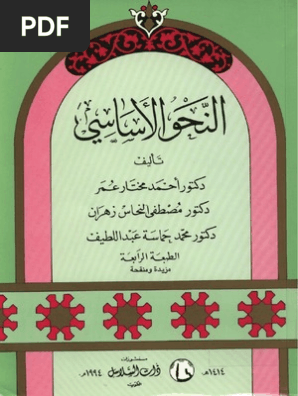 PDF
النَّحوُ الأساسِيّ
تأليف
دكتور أحمد مختار عمر
دكتور مصطفى النحاس زهران
دكتور محمد حماسة عبد اللطيف
الطبعة الرابعة
مزيدة ومنقحة
منشورات
ذات السلاسل
الكويت
١٤١٤هـ
١٩٩٤م